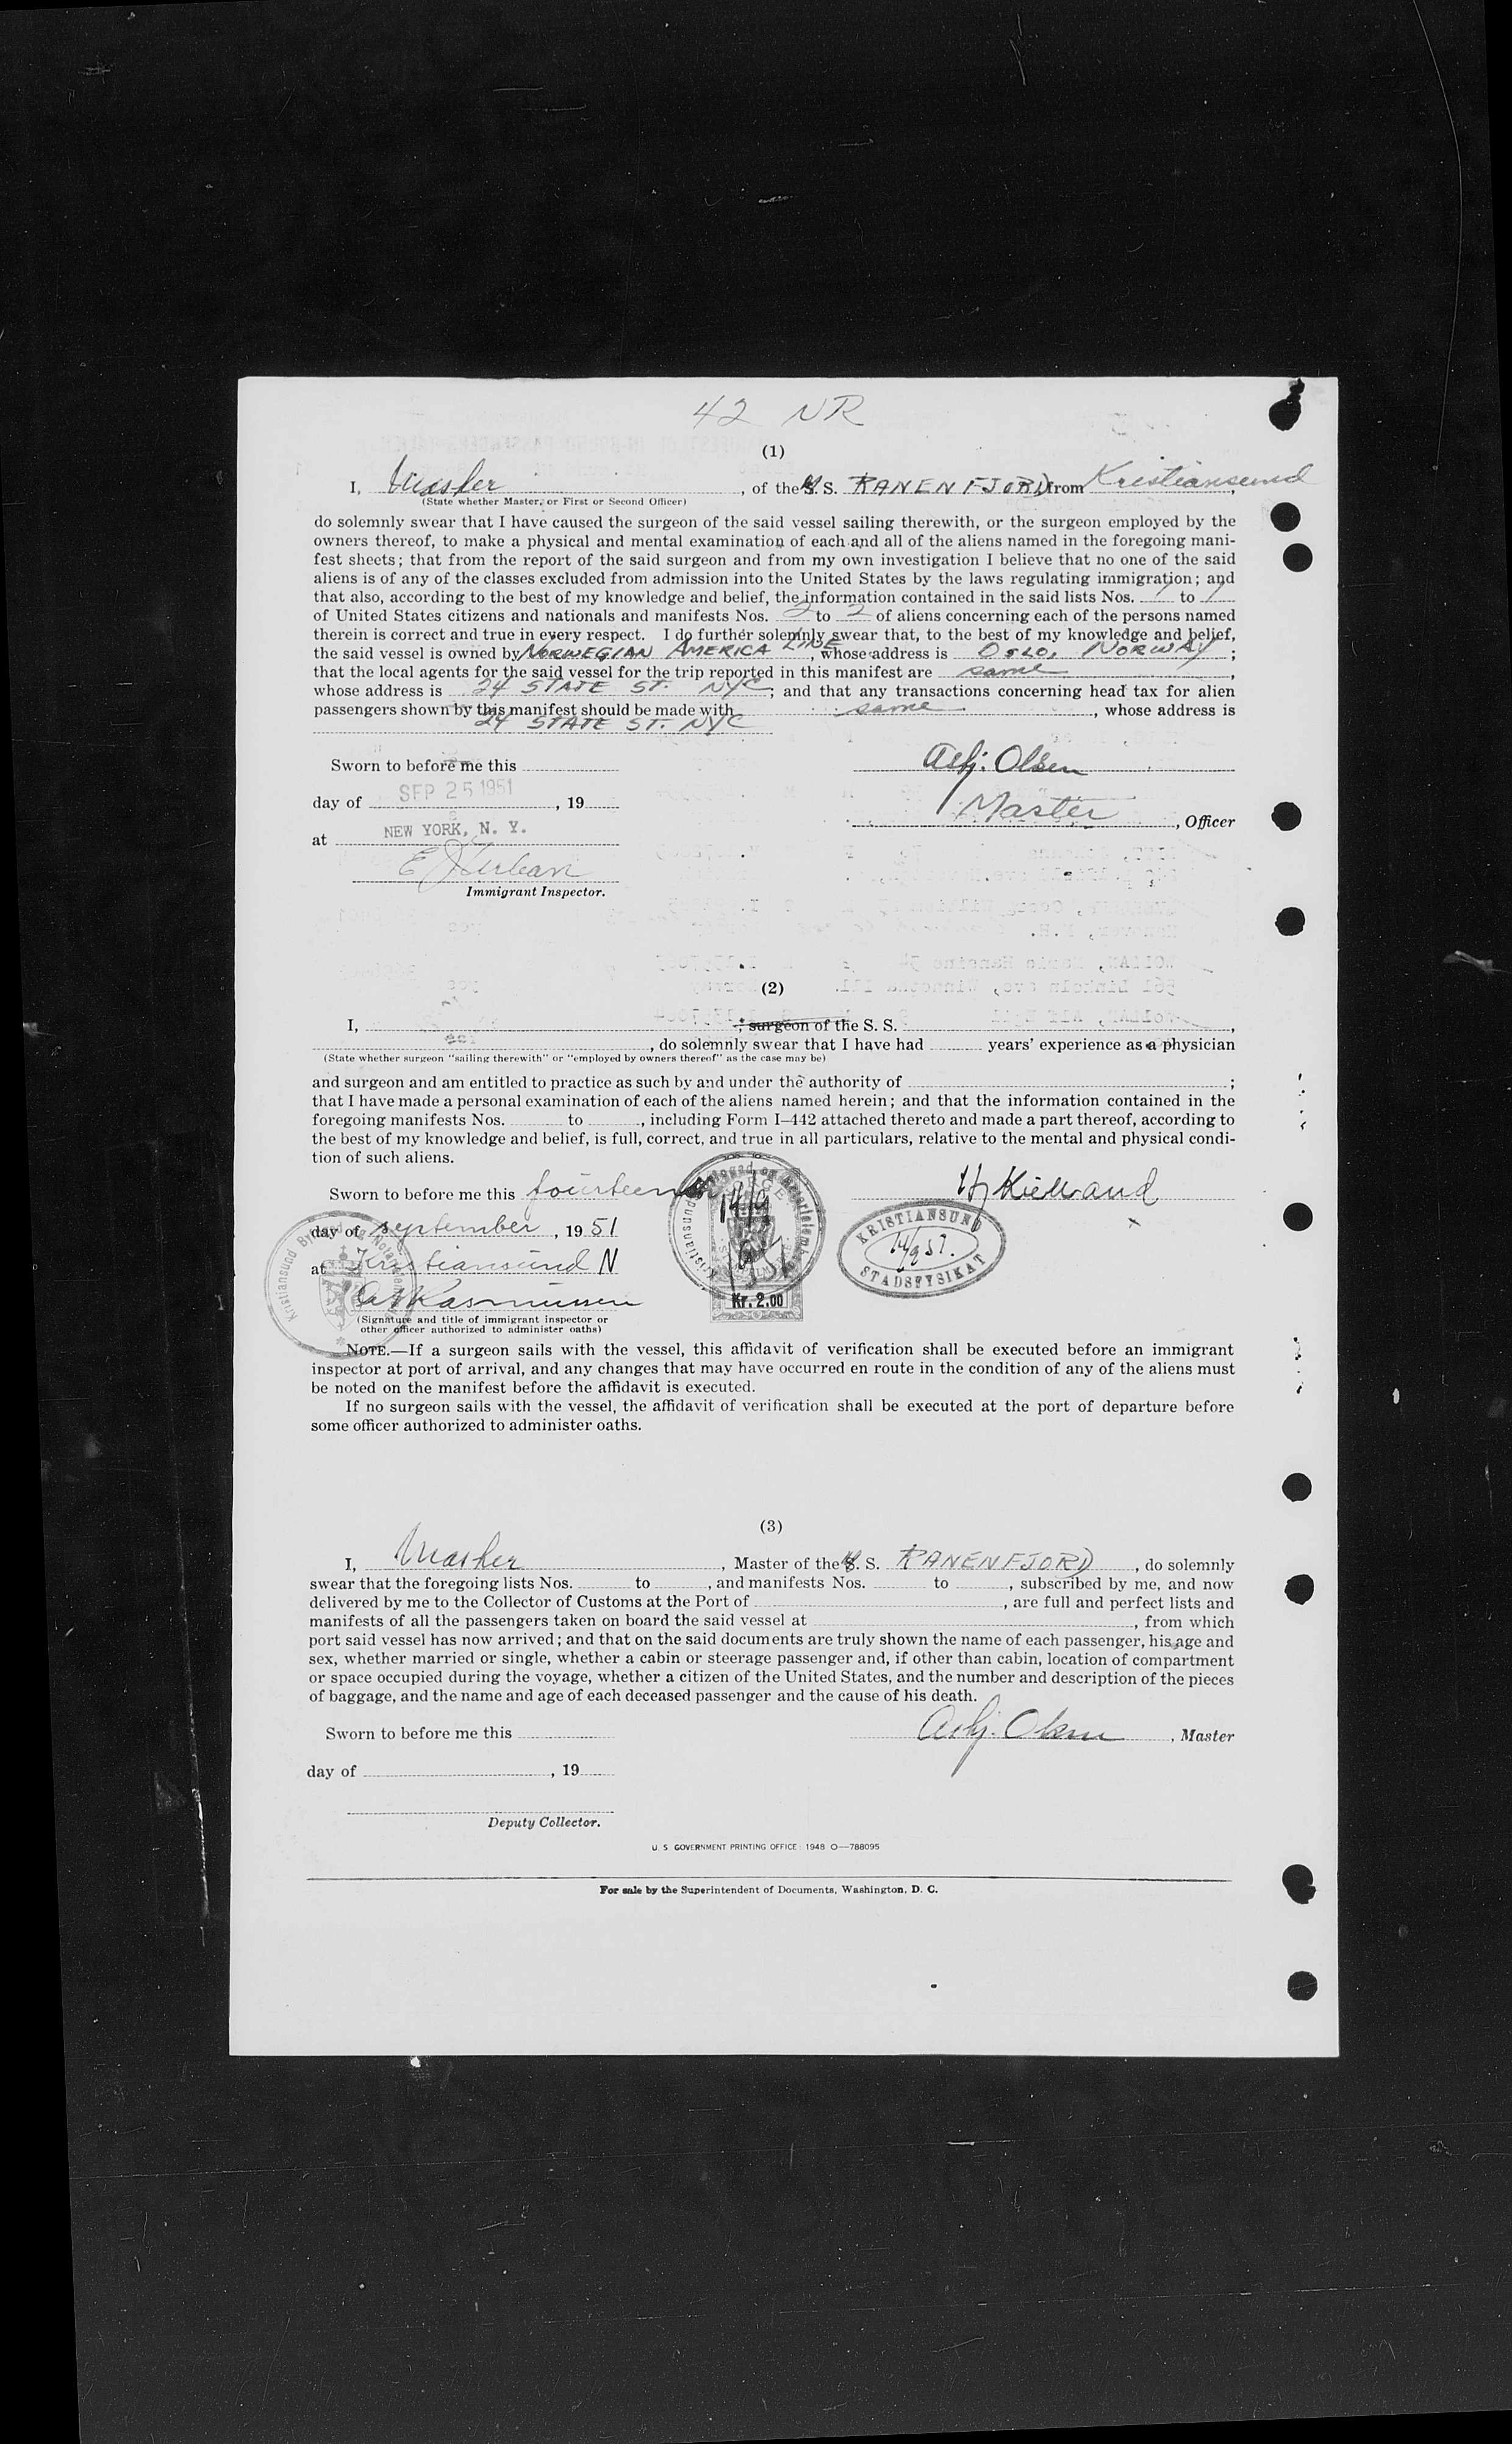 42 NR
(1)
I, Master, of the M. S. RANENFJORD from Kristiansund,
(State whether Master, or First or Second Officer)
do solemnly swear that I have caused the surgeon of the said vessel sailing therewith, or the surgeon employed by the
owners thereof, to make a physical and mental examination of each and all of the aliens named in the foregoing mani-
fest sheets; that from the report of the said surgeon and from my own investigation I believe that no one of the said
aliens is of any of the classes excluded from admission into the United States by the laws regulating immigration; and
that also, according to the best of my knowledge and belief, the information contained in the said lists Nos. 1 to 1
of United States citizens and nationals and manifests Nos. 2 to 2 of aliens concerning each of the persons named
therein is correct and true in every respect. I do further solemnly swear that, to the best of my knowledge and belief,
the said vessel is owned by NORWEGIAN AMERICA LINE, whose address is OSLO, NORWAY;
that the local agents for the said vessel for the trip reported in this manifest are same,
whose address is 24 STATE ST. NYC; and that any transactions concerning head tax for alien
passengers shown by this manifest should be made with same, whose address is
24 STATE ST. NYC
Sworn to before me this
Asbj. Olsen
day of SEP 25 1951, 19
Master, Officer
at NEW YORK, N. Y.
E J Urban
Immigrant Inspector.
(2)
I, , surgeon of the S. S. ,
, do solemnly swear that I have had years' experience as a physician
(State whether surgeon "sailing therewith" or "employed by owners thereof" as the case may be)
and surgeon and am entitled to practice as such by and under the authority of ;
that I have made a personal examination of each of the aliens named herein; and that the information contained in the
foregoing manifests Nos. to , including Form I–442 attached thereto and made a part thereof, according to
the best of my knowledge and belief, is full, correct, and true in all particulars, relative to the mental and physical condi-
tion of such aliens.
Sworn to before me this fourteen
Kielland
day of september, 19 51
at Kristiansund N
Rasmussen
(Signature and title of immigrant inspector or
other officer authorized to administer oaths)
14/9
1951
Kr. 2.00
KRISTIANSUND
14/9 51.
STADSFYSIKAT
NOTE.—If a surgeon sails with the vessel, this affidavit of verification shall be executed before an immigrant
inspector at port of arrival, and any changes that may have occurred en route in the condition of any of the aliens must
be noted on the manifest before the affidavit is executed.
If no surgeon sails with the vessel, the affidavit of verification shall be executed at the port of departure before
some officer authorized to administer oaths.
(3)
I, Master, Master of the M. S. RANENFJORD, do solemnly
swear that the foregoing lists Nos. to , and manifests Nos. to , subscribed by me, and now
delivered by me to the Collector of Customs at the Port of , are full and perfect lists and
manifests of all the passengers taken on board the said vessel at , from which
port said vessel has now arrived; and that on the said documents are truly shown the name of each passenger, his age and
sex, whether married or single, whether a cabin or steerage passenger and, if other than cabin, location of compartment
or space occupied during the voyage, whether a citizen of the United States, and the number and description of the pieces
of baggage, and the name and age of each deceased passenger and the cause of his death.
Sworn to before me this
Asbj. Olsen, Master
day of , 19
Deputy Collector.
U. S. GOVERNMENT PRINTING OFFICE: 1948 O—788095
For sale by the Superintendent of Documents, Washington, D. C.